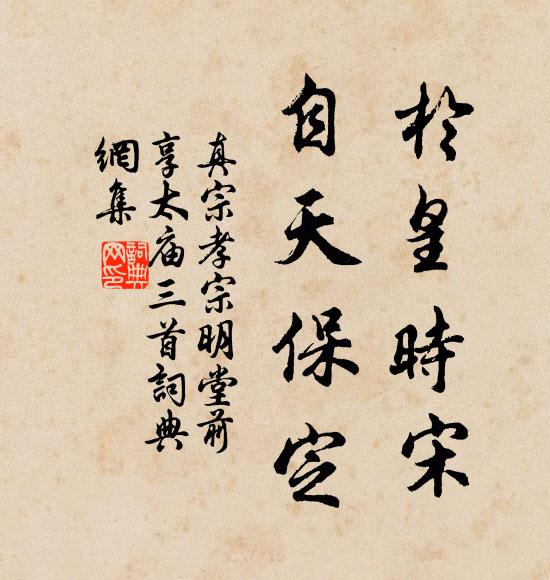 於皇時宋
自天保定
真宗孝宗明堂前
享太庙三首詞典
網集
詞典
网印